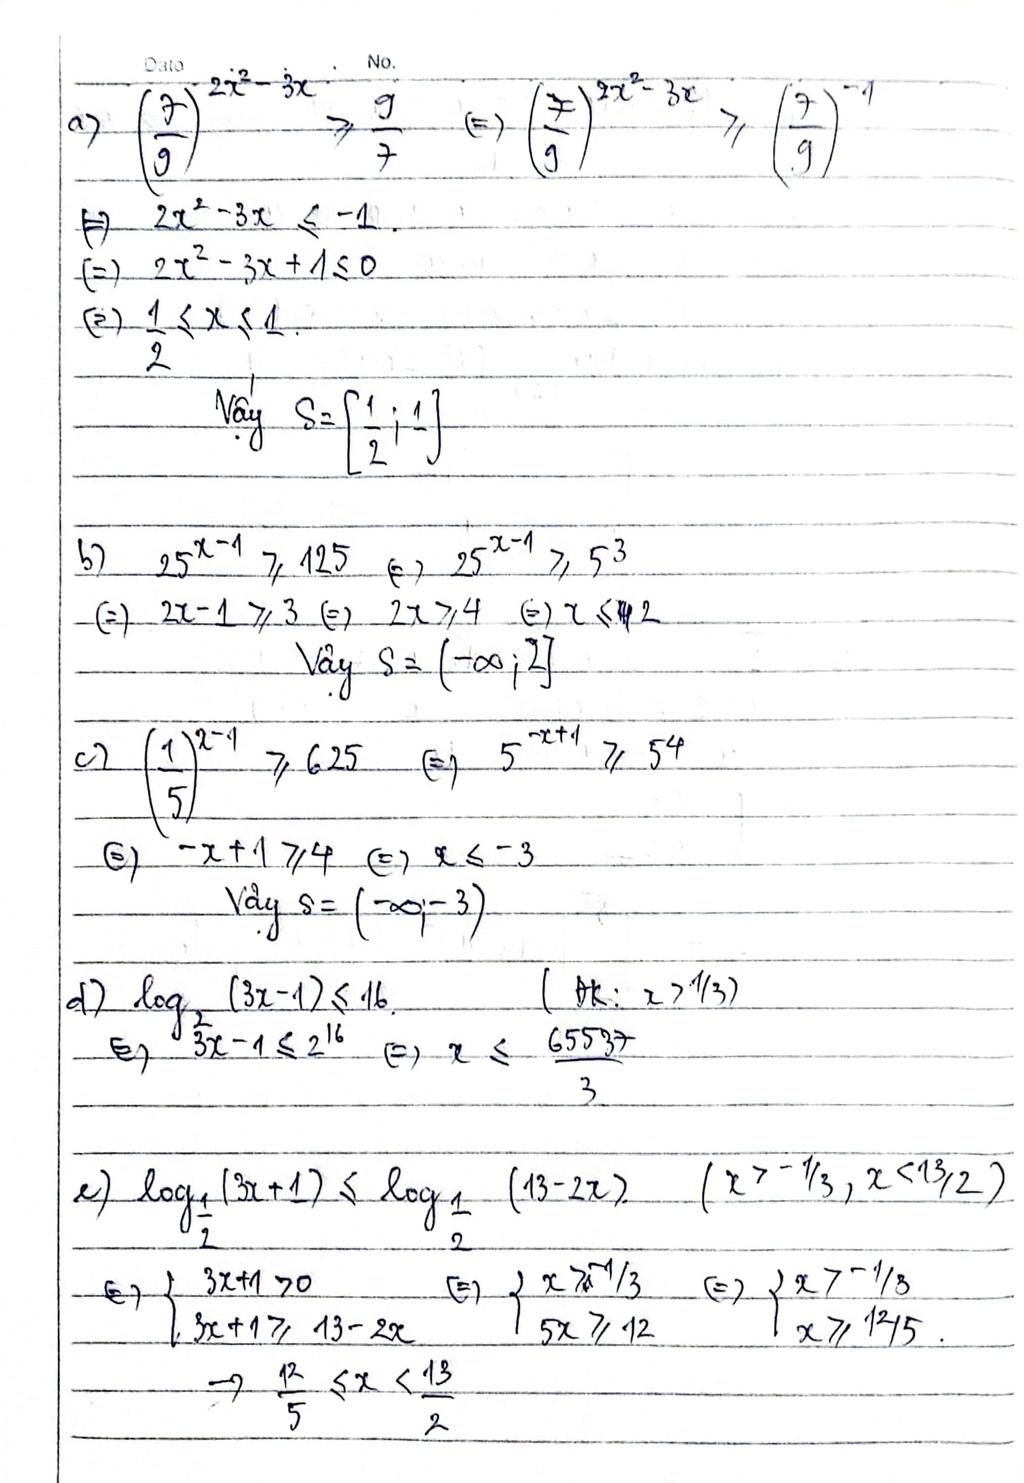 Date No.
a) (7/9)^(2x²-3x) ≥ 9/7 (=) (7/9)^(2x²-3x) ≥ (7/9)^(-1)
(=) 2x²-3x ≤ -1.
(=) 2x²-3x+1≤0
(=) 1/2 ≤ x ≤ 1.
Vậy S=[1/2; 1]
b) 25^(x-1) ≥ 125 (=) 25^(x-1) ≥ 5³
(=) 2x-1 ≥ 3 (=) 2x ≥ 4 (=) x ≤ 2
Vậy S= (-∞; 2]
c) (1/5)^(x-1) ≥ 625 (=) 5^(-x+1) ≥ 5⁴
(=) -x+1 ≥ 4 (=) x ≤ -3
Vậy S= (-∞; -3)
d) log₂ (3x-1) ≤ 16. (ĐK: x > 1/3)
(=) 3x-1 ≤ 2^16 (=) x ≤ 65537/3
e) log_(1/2) (3x+1) ≤ log_(1/2) (13-2x) (x > -1/3, x < 13/2)
(=) { 3x+1 > 0 (=) { x > -1/3 (=) { x > -1/3
3x+1 ≥ 13-2x 5x ≥ 12 x ≥ 12/5.
→ 12/5 ≤ x < 13/2